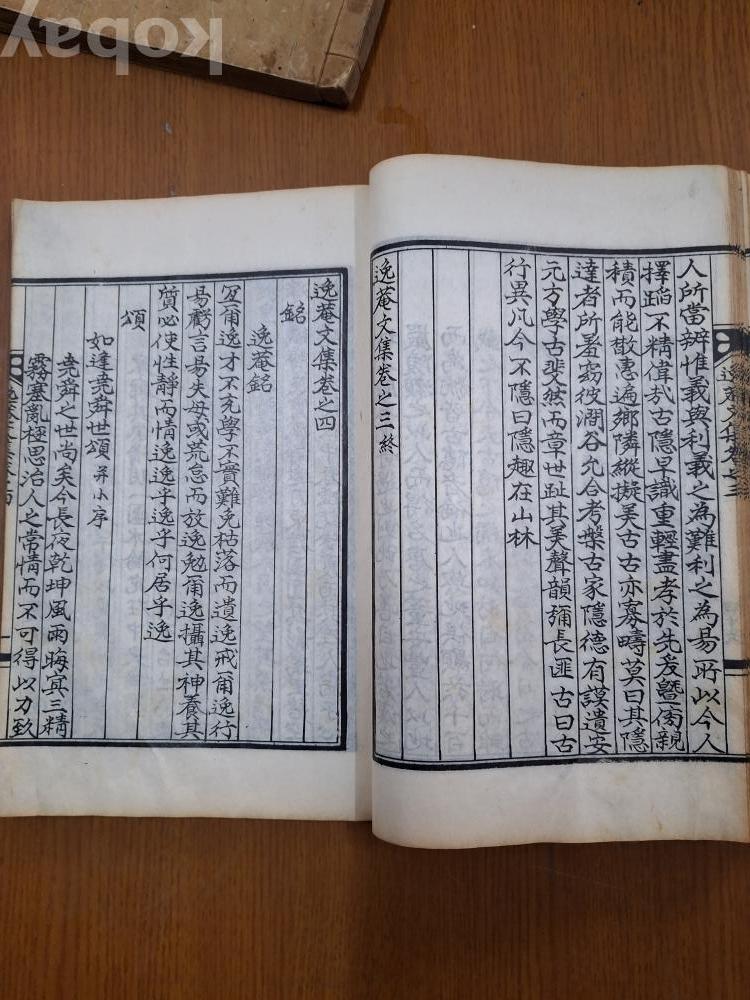 人所當辨惟義與利義之為難利之為易所以今人
擇蹈不精偉哉古隱早識重輕盡孝於先爰曁傍親
積而能散惠遍鄉隣縱擬美古古亦寡疇莫曰其隱
達者所羞窈彼澗谷允合考槃古家隱德有謨遺安
元方學古斐然而章世趾其美聲韻彌長匪古曰古
行異凡今不隱曰隱趣在山林
逸菴文集卷之三終
逸菴文集卷之四
銘
逸菴銘
爾逸才不充學不實難免枯落而遺逸戒爾逸行
易虧言易失毋或荒怠而放逸勉爾逸攝其神養其
質必使性靜而情逸逸乎逸乎何居乎逸
頌
如逢堯舜世頌 并小序
堯舜之世尚矣今長夜乾坤風雨晦冥三精
霧塞亂極思治人之常情而不可得以力致
kobay